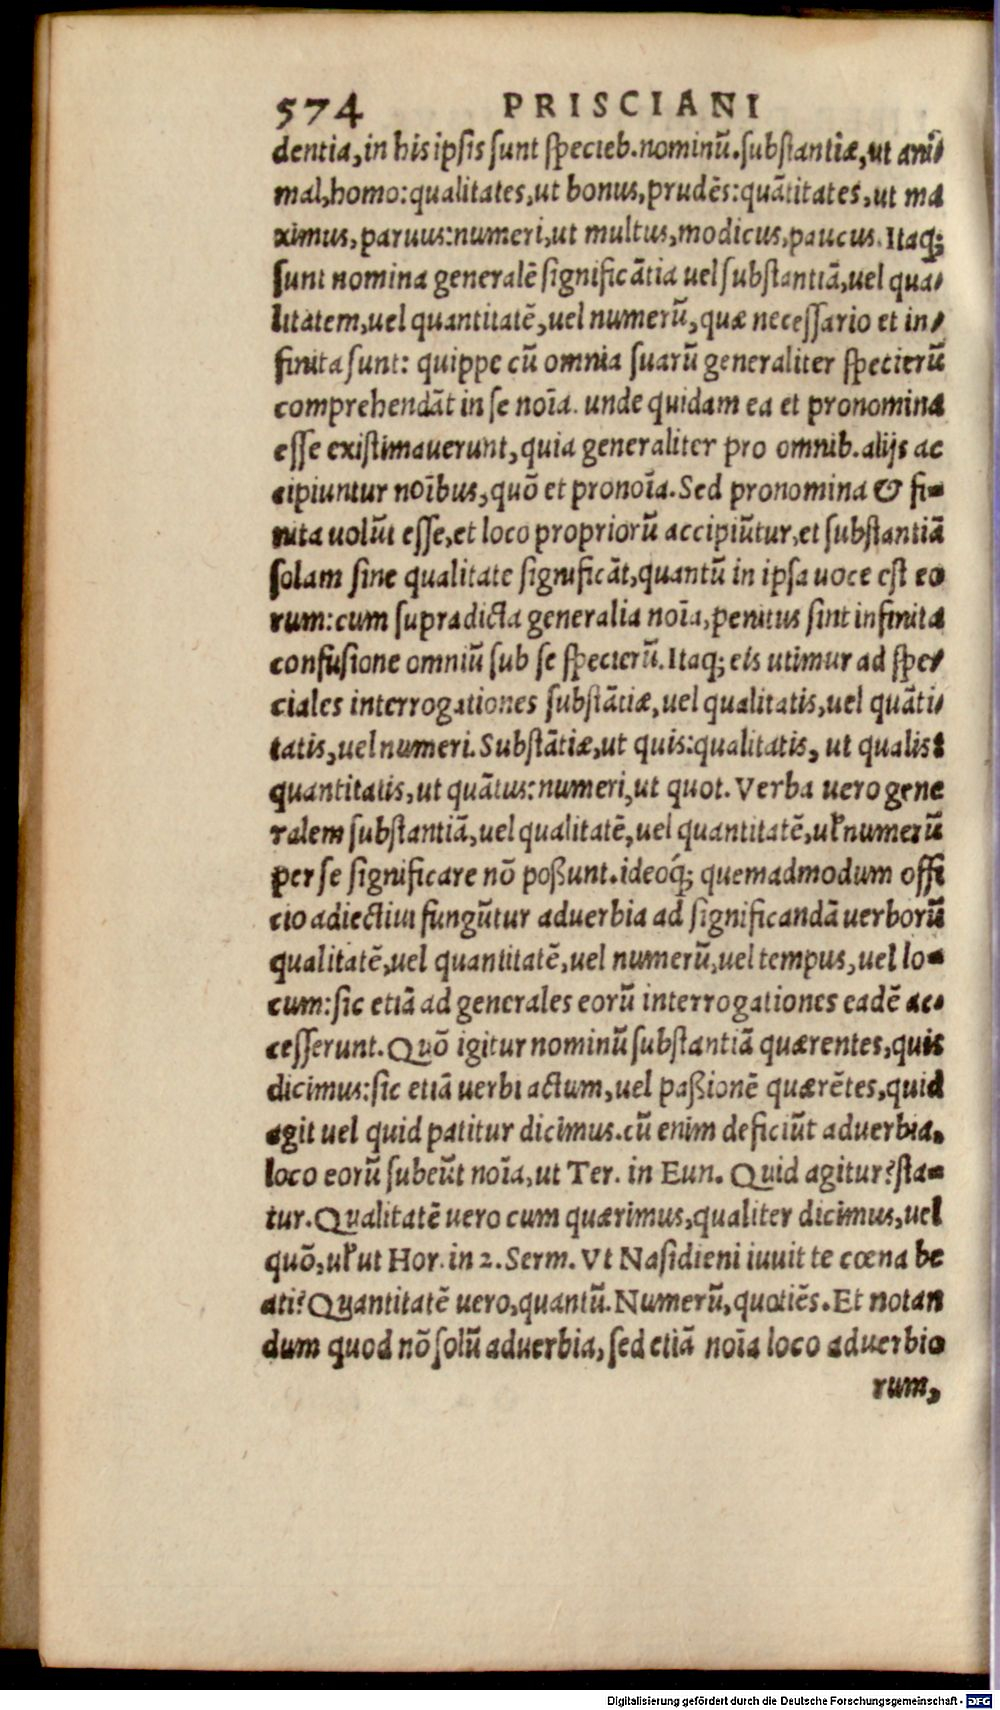 574 PRISCIANI
dentia, in his ipsis sunt specieb. nominū. substantiæ, ut ani-
mal, homo: qualitates, ut bonus, prudēs: quātitates, ut ma
ximus, paruus: numeri, ut multus, modicus, paucus. Itaq;
sunt nomina generalē significātia uel substantiā, uel qua-
litatem, uel quantitatē, uel numerū, quæ necessario et in-
finita sunt: quippe cū omnia suarū generaliter specierū
comprehendāt in se noīa. unde quidam ea et pronomina
esse existimauerunt, quia generaliter pro omnib. alijs ac
cipiuntur noībus, quō et pronoīa. Sed pronomina & fi-
nita uolūt esse, et loco propriorū accipiūtur, et substantiā
solam sine qualitate significāt, quantū in ipsa uoce est eo
rum: cum supradicta generalia noīa, penitus sint infinita
confusione omniū sub se specierū. Itaq; eis utimur ad spe-
ciales interrogationes substātiæ, uel qualitatis, uel quāti-
tatis, uel numeri. Substātiæ, ut quis: qualitatis, ut qualis:
quantitatis, ut quātus: numeri, ut quot. Verba uero gene
ralem substantiā, uel qualitatē, uel quantitatē, uł numerū
per se significare nō poßunt. ideóq; quemadmodum offi
cio adiectiui fungūtur aduerbia ad significandā uerborū
qualitatē, uel quantitatē, uel numerū, uel tempus, uel lo-
cum: sic etiā ad generales eorū interrogationes eadē ac-
cesserunt. Quō igitur nominū substantiā quærentes, quis
dicimus: sic etiā uerbi actum, uel paßionē quærētes, quid
agit uel quid patitur dicimus. cū enim deficiūt aduerbia,
loco eorū subeūt noīa, ut Ter. in Eun. Quid agitur? sta-
tur. Qualitatē uero cum quærimus, qualiter dicimus, uel
quō, uł ut Hor. in 2. Serm. Vt Nasidieni iuuit te cœna be
ati? Quantitatē uero, quantū. Numerū, quotiēs. Et notan
dum quod nō solū aduerbia, sed etiā noīa loco aduerbio
rum,
Digitalisierung gefördert durch die Deutsche Forschungsgemeinschaft - DFG